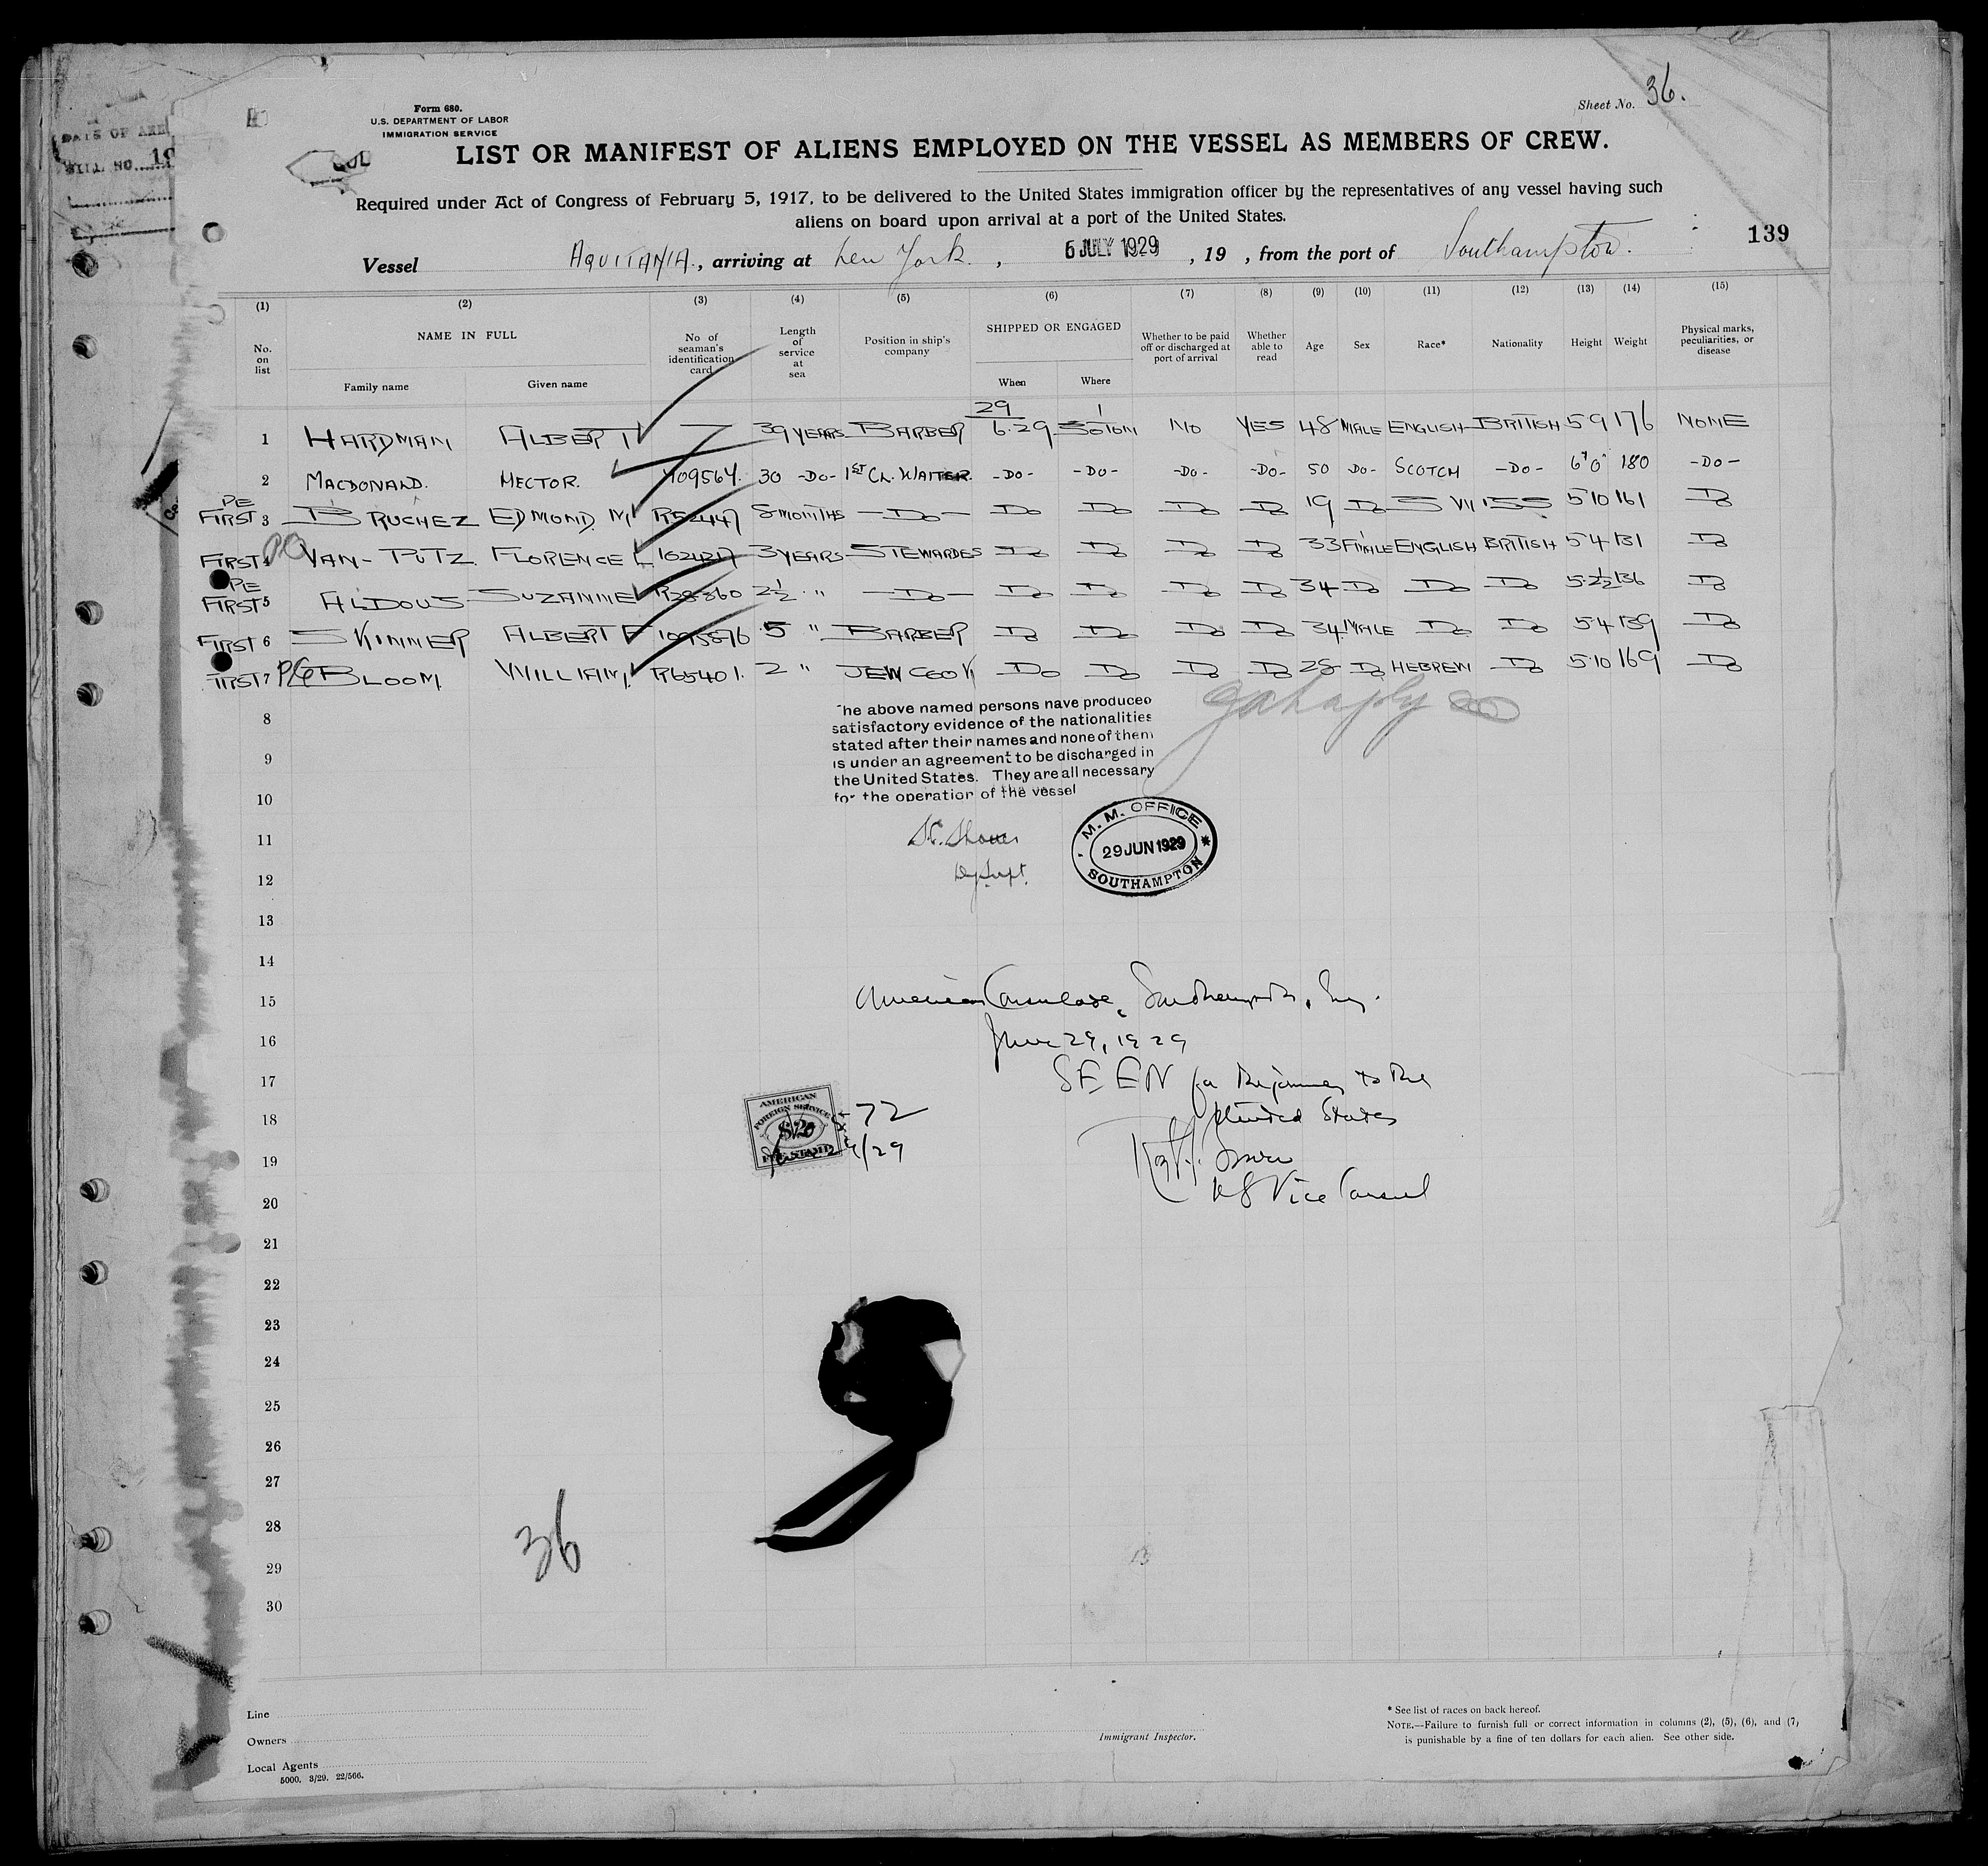 Sheet No. 36.
Form 680.
U.S. DEPARTMENT OF LABOR
IMMIGRATION SERVICE
LIST OR MANIFEST OF ALIENS EMPLOYED ON THE VESSEL AS MEMBERS OF CREW.
Required under Act of Congress of February 5, 1917, to be delivered to the United States immigration officer by the representatives of any vessel having such
aliens on board upon arrival at a port of the United States.
139
Vessel AQUITANIA., arriving at New York., 6 JULY 1929, 19 , from the port of Southampton.
(1) (2) (3) (4) (5) (6) (7) (8) (9) (10) (11) (12) (13) (14) (15)
No. on list NAME IN FULL Family name Given name No. of seaman's identification card Length of service at sea Position in ship's company SHIPPED OR ENGAGED When Where Whether to be paid off or discharged at port of arrival Whether able to read Age Sex Race* Nationality Height Weight Physical marks, peculiarities, or disease
29
1 HARDMAN ALBERT 39 YEARS BARBER 6.29 SOTON NO YES 48 MALE ENGLISH BRITISH 5 9 176 NONE
2 MACDONALD. HECTOR. 30 -DO- 1ST CL. WAITER. -DO- -DO- -DO- -DO- 50 DO- SCOTCH -DO- 6'0" 180 -DO-
PE
FIRST 3 BRUCHEZ EDMOND. M R52447 8 MONTHS -DO- DO DO DO DO 19 DO SWISS 5·10 161 DO
FIRST 4 VAN-PUTZ FLORENCE L 3 YEARS STEWARDES DO DO DO DO 33 FEMALE ENGLISH BRITISH 5·4 131 DO
PE
FIRST 5 ALDOUS SUZANNE R28860 2½ " -DO- DO DO DO DO 34 DO DO DO 5·2½ 136 DO
FIRST 6 SKINNER ALBERT F 1095876 5 " BARBER DO DO DO DO 34 MALE DO DO 5·4 139 DO
FIRST 7 BLOOM WILLIAM. R65401. 2 " JEW COOK DO DO DO DO 28 DO HEBREW DO 5·10 169 DO
The above named persons have produced
satisfactory evidence of the nationalities
stated after their names and none of them
is under an agreement to be discharged in
the United States. They are all necessary
for the operation of the vessel
8
9
10
11
Dy Supt.
M. M. OFFICE
29 JUN 1929
SOUTHAMPTON
12
13
14
15
American Consulate, Southampton, Eng.
16
June 29, 1929
17
SEEN for the journey to the
United States
18
AMERICAN
FOREIGN SERVICE
FEE STAMP
72
19
20
US Vice Consul
21
22
23
24
25
26
27
28
36
29
30
Line
Owners
Local Agents
5000. 3/29. 22/566.
Immigrant Inspector.
* See list of races on back hereof.
NOTE.—Failure to furnish full or correct information in columns (2), (5), (6), and (7)
is punishable by a fine of ten dollars for each alien. See other side.